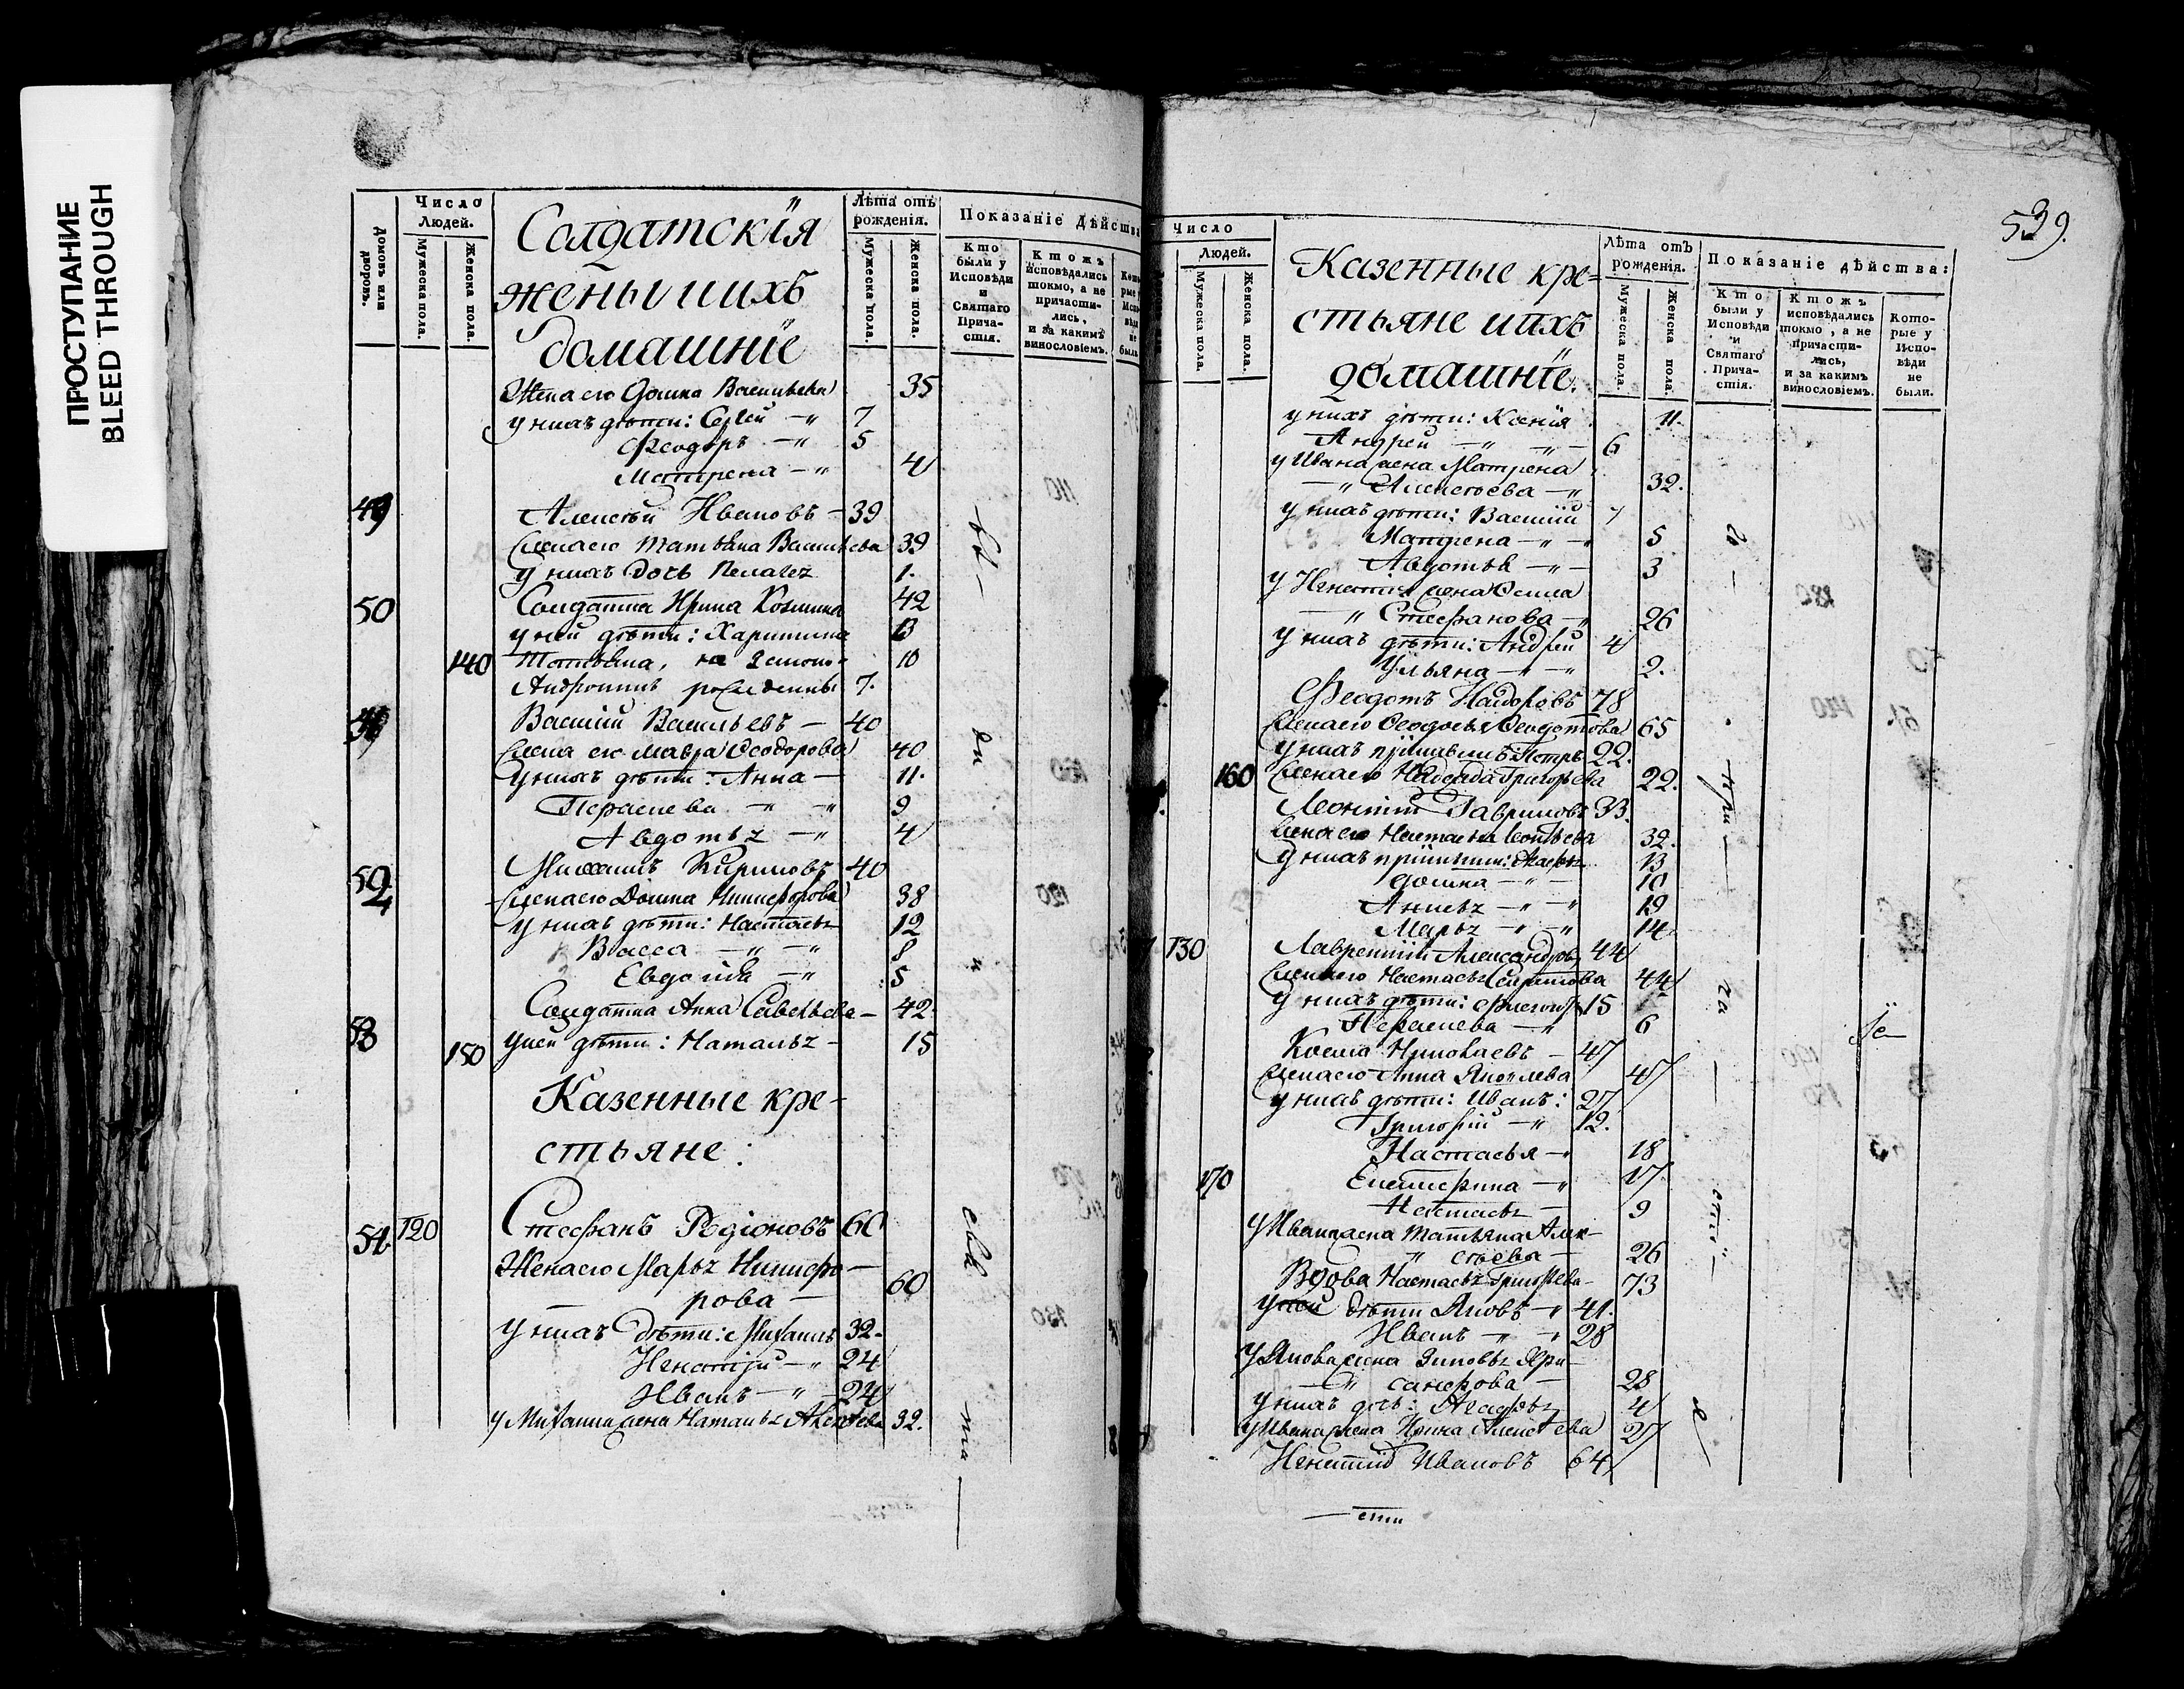 ПРОСТУПАНИЕ
BLEED THROUGH
Домовъ или дворовъ.
Число Людей.
Мужеска пола.
Женска пола.
Солдатскiя
жены и ихъ
домашнiе
Лѣта отъ рожденiя.
Мужеска пола.
Женска пола.
Показанiе дѣйства
Кто были у Исповѣди и Святаго Прича-стiя.
Ктожъ исповѣдались токмо, а не причасти-лись, и за какимъ винословiемъ.
Жена его Домна Васильева 35
у нихъ дѣти: Сергей —„ 7
Феодоръ —„ 5
Матрена —„ 4
49 Алексѣй Ивановъ — 39
Жена его Татьяна Васильева 39
у нихъ дочь Пелагея 1.
50 Солдатка Ирина Козмина 42
у ней дѣти: Харитина 13
140 Татьяна, 10
7.
Василiй Васильевъ — 40
Жена его Мавра Феодорова 40
у нихъ дѣти: Анна — 11.
Параскева —„ —„ 9
Авдотья —„ 4
52 Михаилъ Кириловъ 40
Жена его Домна Никифорова 38
у нихъ дѣти: Настасья 12
Васса —„ —„ 8
Евдокiя —„ 5
Солдатка Анна Савельева — 42.
53 150 у ней дѣти: Наталья — 15
Казенные кре-
стьяне:
54. 120 Стефанъ Родiоновъ 60
Жена его Марья Никифо—
рова — 60
у нихъ дѣти: Михаилъ 32.
Игнатiй —„ 24
Иванъ —„ — 24
у Михаила жена Наталья 32.
539.
Число Людей.
Мужеска пола.
Женска пола.
Казенные кре=
стьяне и ихъ
домашнiе.
Лѣта отъ рожденiя.
Мужеска пола.
Женска пола.
Показанiе дѣйства:
Кто были у Исповѣди и Святаго Прича-стiя.
Ктожъ исповѣдались токмо, а не причасти-лись, и за какимъ винословiемъ.
Кото-рые у Испо-вѣди не были.
у нихъ дѣти: Ксенiя 11.
Андрей —„ —„— 6
у Ивана жена Матрена
—„ Алексѣева —„ 32.
у нихъ дѣти: Василiй 7
Матрена —„ —„ 5
Авдотья —„ — 3
у Игнатiя жена
—„ Стефанова —„ 26
у нихъ дѣти: Андрей 4
Ульяна —„ —„ 2.
Феодотъ 78
Жена его Феодосья Феодотова 65
у нихъ Петръ 22.
160 Жена его Надежда Григорьева 22.
Леонтiй Гавриловъ 33.
Жена его Настасья 32.
у нихъ 13
Домна —„ — 10
Анисья —„ —„ 19
Марья —„ —„ 14.
130 Лаврентiй Александровъ 44
Жена его Настасья 44
у нихъ дѣти: 15
Параскева —„ 6
Косма — 47
Жена его Анна Яковлева 47
у нихъ дѣти: Иванъ: 27
Григорiй —„ 12.
Настасья —„ 18
170 Екатерина —„ 17.
Настасья — 9
у Ивана жена Татьяна Алек—
„ сѣева — 26
Вдова Настасья Григорьева — 73
у ней дѣти Яковъ —„ 41.
Иванъ —„ —„ 28
у Якова жена Зиновья Хри—
—„ санфова — 28
у нихъ дочь: Агафья 4
у Ивана жена Ирина Алексѣева 27
Игнатiй Ивановъ 64